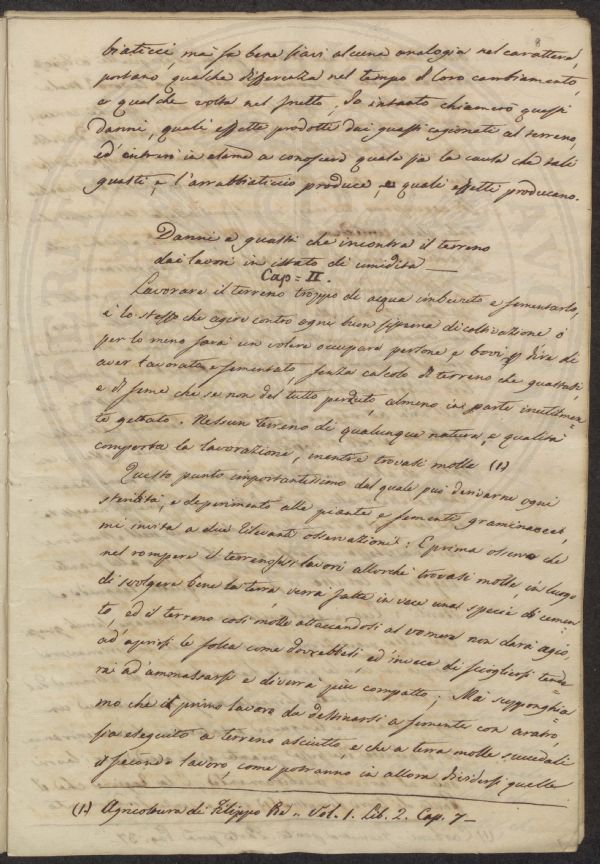 8
biaticci, ma se bene siavi alcuna analogia nel carattere,
portano qualche differenza nel tempo di loro cambiamento,
e qualche volta nel frutto, Io intanto chiamerò questi
Danni, quali effetti prodotti dai guasti cagionati al terreno,
ed' entrerò in esame a conoscere quale sia la causa che tali
guasti, e l'arrabbiaticcio produce, e quali effetti producano.
Danni e guasti che incontra il terreno
dai lavori in istato di umidità
Cap = II.
Lavorare il terreno troppo di acqua imbevuto e sementarlo,
è lo stesso che agire contro ogni buon sistema di coltivazione o
per lo meno sarà un volere occupare persone e bovi p dire di
aver lavorato e sementato, senza calcolo di terreno che guastasi,
e di seme che se non del tutto perduto, almeno in parte inutilmen-
te gettato. Nessun terreno di qualunque natura, e qualità
comporta la lavorazione, mentre trovasi molle (1)
Questo punto importantissimo dal quale può derivarne ogni
sterilità, e deperimento alle piante e sementi graminacee,
mi invita a due rilevanti osservazioni: E prima osservo che
nel rompere il terreno per lavori allorchè trovasi molle, in luogo
di svolgere bene la terra, verrà fatta in vece una specie di cemen-
to, ed il terreno così molle attaccandosi al vomere non darà agio,
ad' aprirsi le solca come dovrebbesi, ed invece di sciogliersi tende-
rà ad' ammassarsi e diverrà più compatto; Mà supponghia-
mo che il primo lavoro da destinarsi a semente con aratro,
sia eseguito a terreno asciutto, e che a terra molle succedali
il secondo lavoro, come potranno in allora dividersi quelle
(1) Agricoltura di Filippo Re .. Vol. 1. Lib. 2. Cap. 7 —